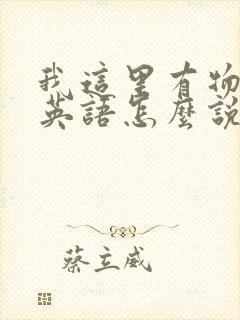 我這里有物
英語怎麼說
蔡立威